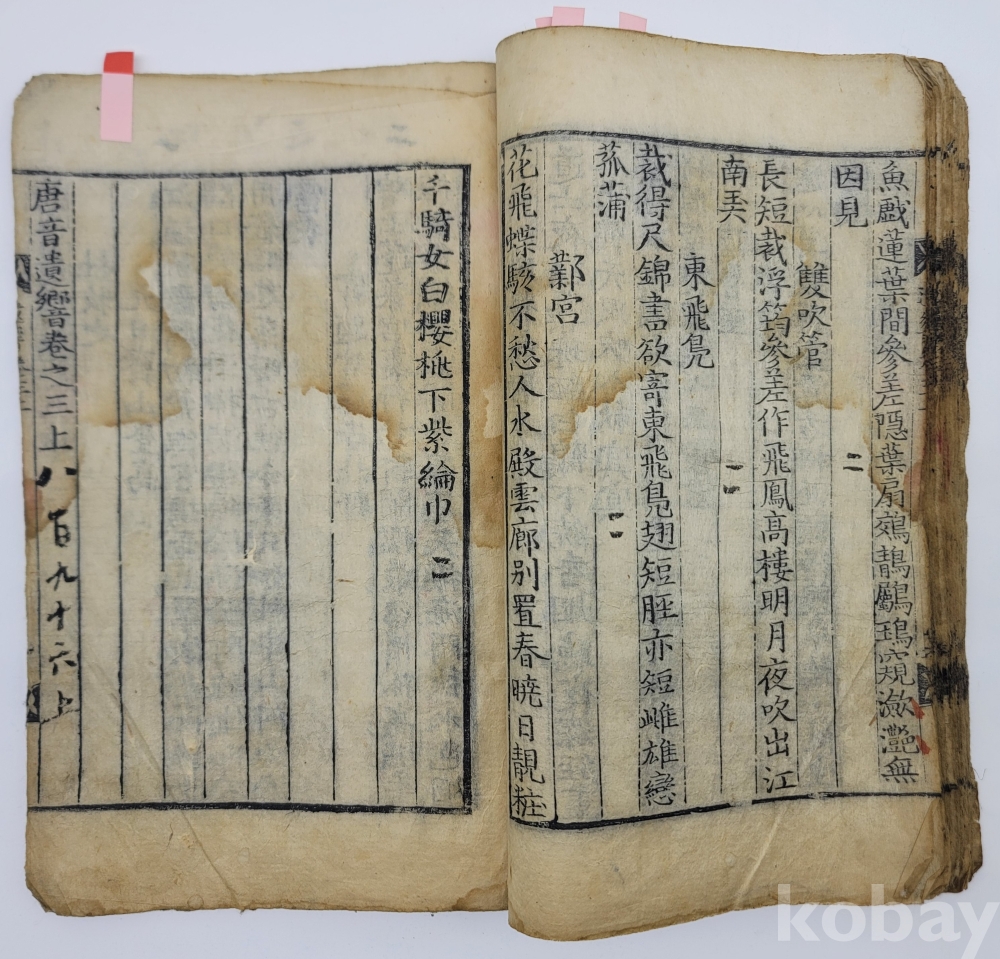 魚戱蓮葉間參差隱葉扇鵁鶄鸀鳿窺瀲灎無
因見 二
雙吹管
長短裁浮筠參差作飛鳳高樓明月夜吹出江
南弄 二
東飛鳧
裁得尺錦書欲寄東飛鳧翅短脛亦短雌雄戀
菰蒲 二
鄴宮
花飛蝶駭不愁人水殿雲廊别置春曉日靚粧
千騎女白櫻桃下紫綸巾 二
唐音遺響卷之三上 八百九十六上
kobay